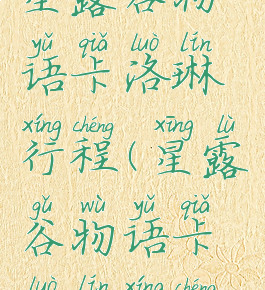 星露谷物
yǔ qiǎ luò lín
语卡洛琳
xíng chéng xīng lù
行程(星露
gǔ wù yǔ qiǎ
谷物语卡
luò lín xíng chéng